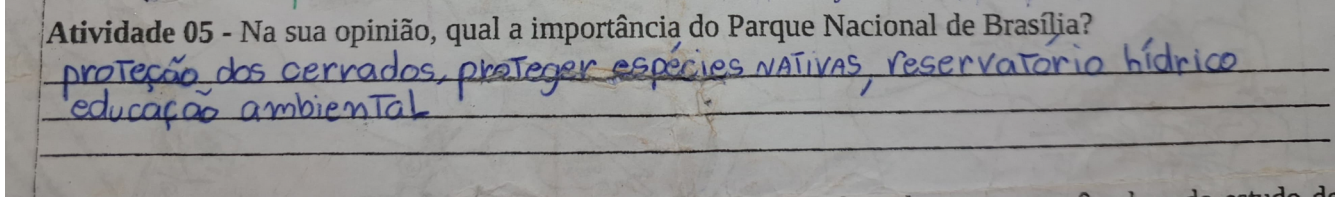 Atividade 05 - Na sua opinião, qual a importância do Parque Nacional de Brasília?
proteção dos cerrados, proteger espécies NATIVAS, reservatório hídrico
educação ambiental